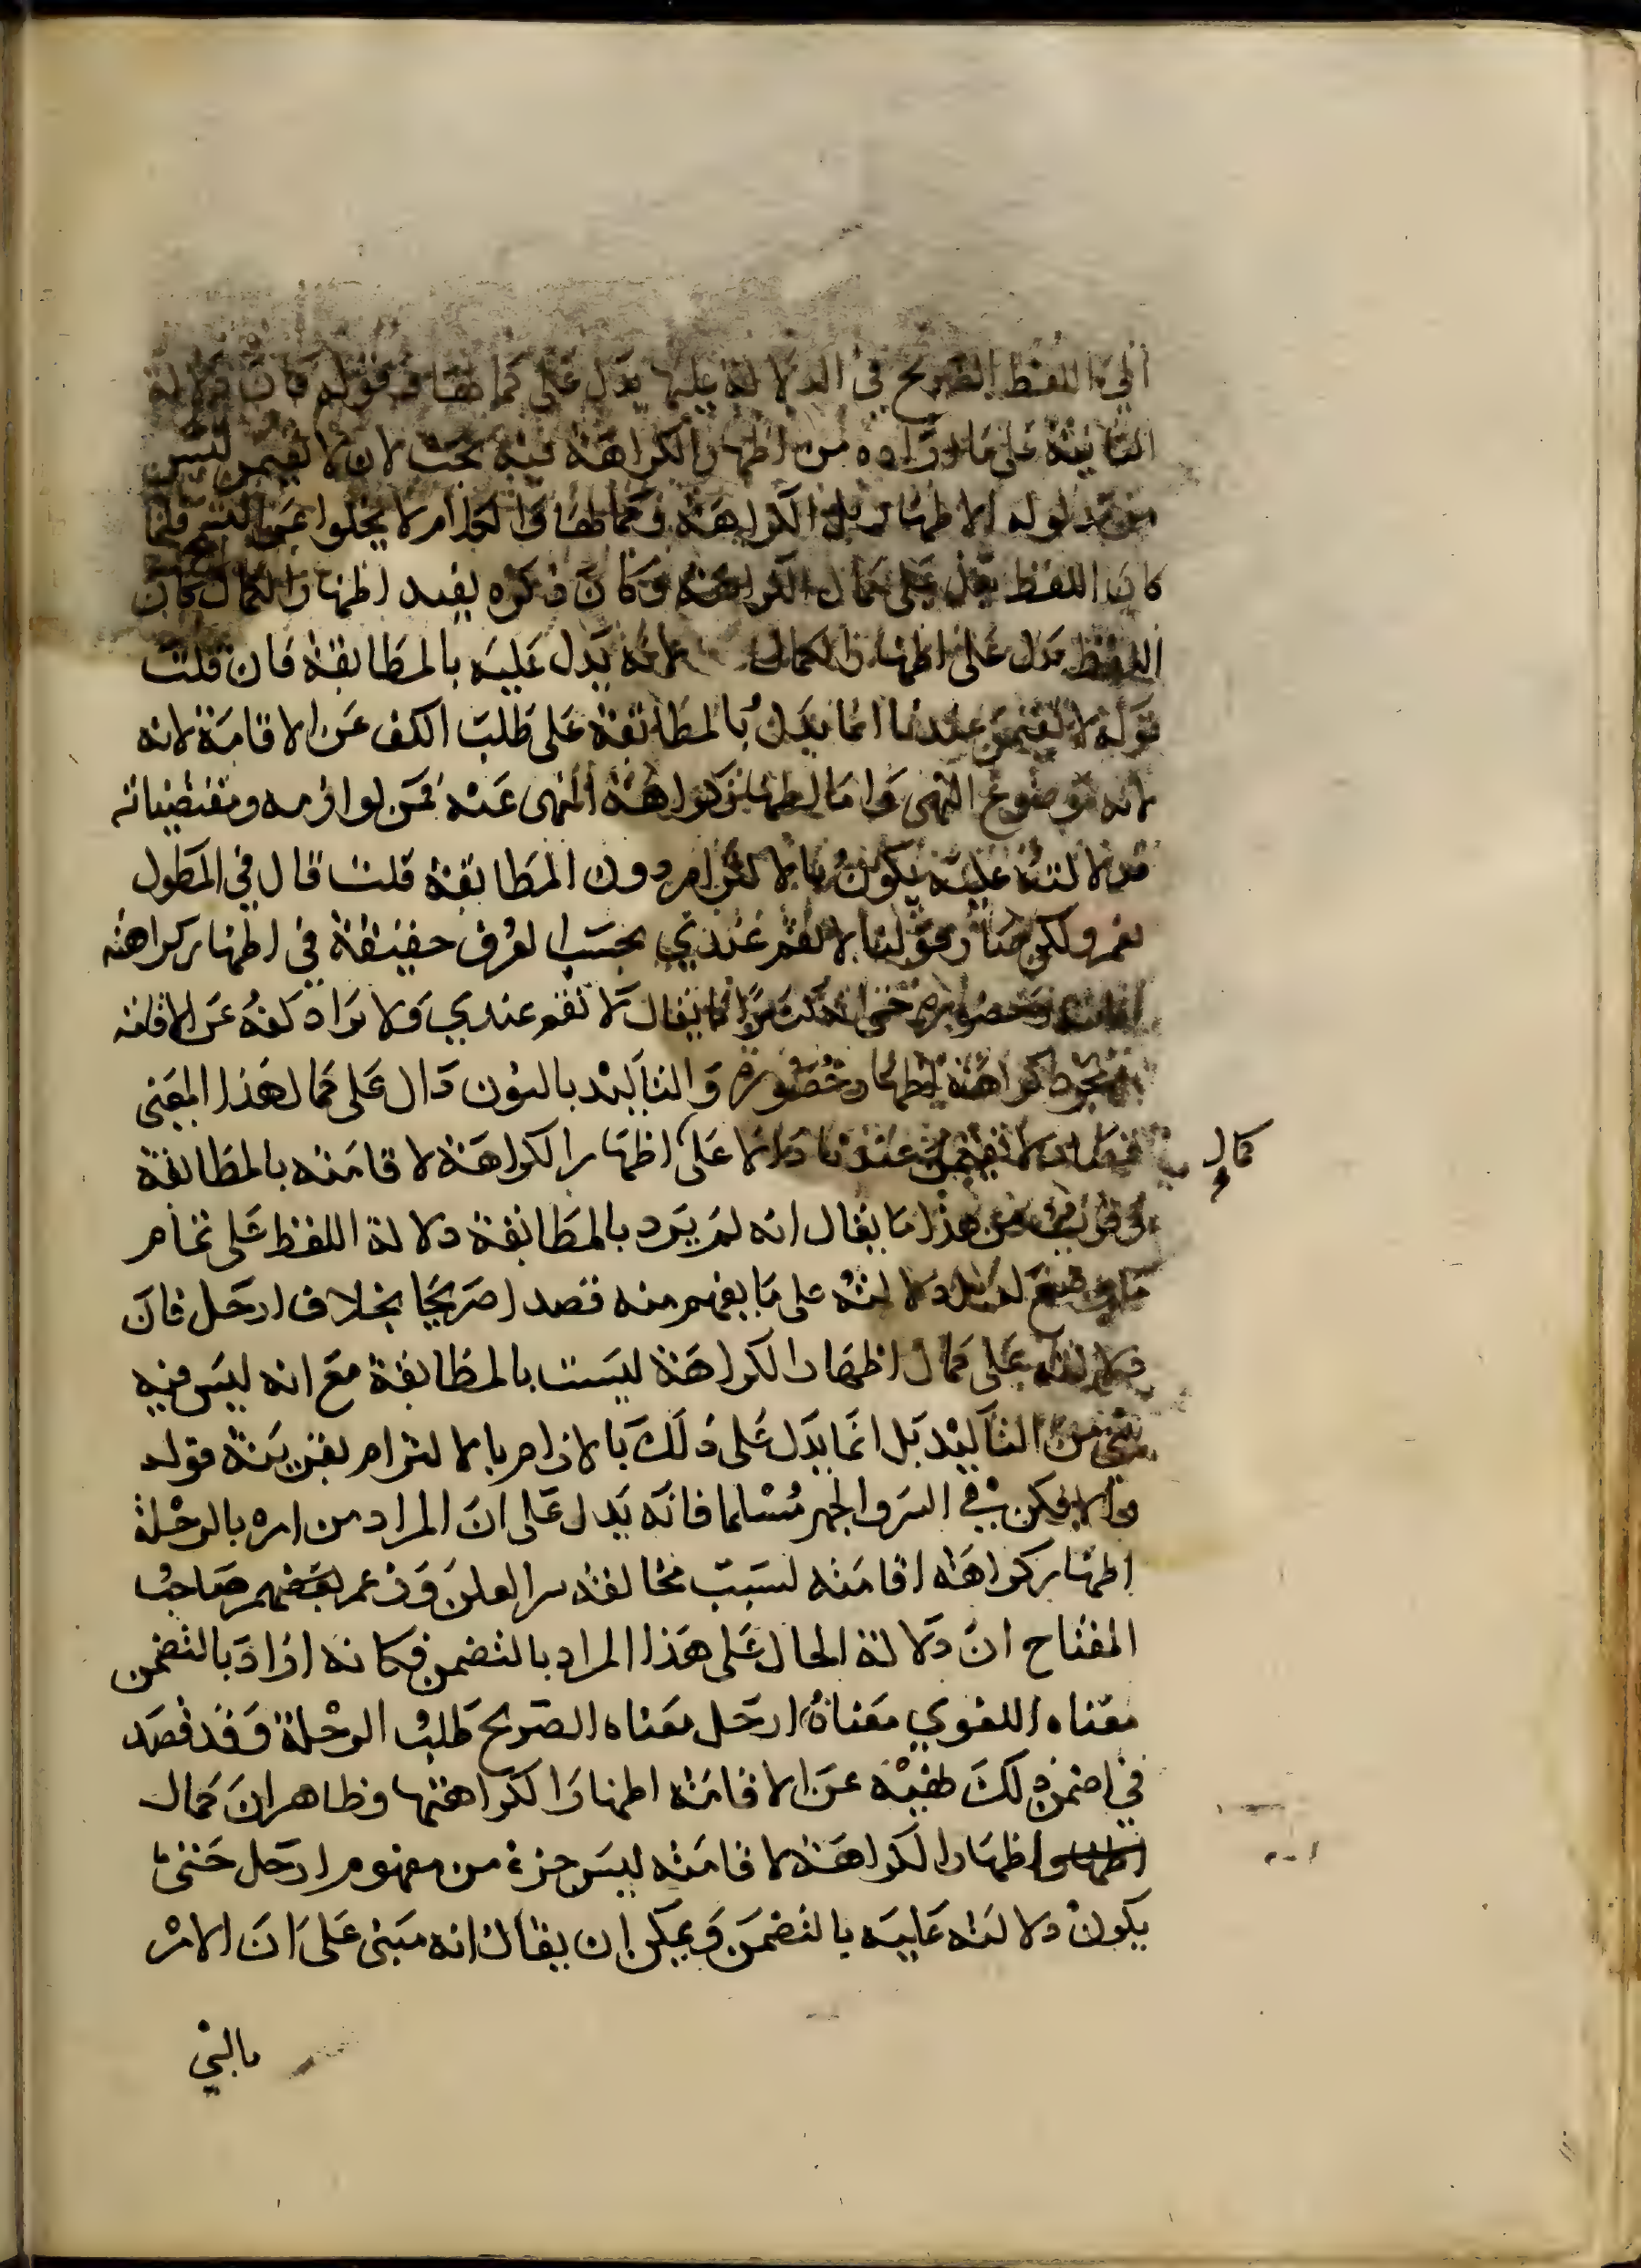 الى اللفظ الصريح في الدلالة عليها يدل على كمالها قوله فان دلالة
الثانية على ما اراده من اظهار الكراهة فيه بحث لان لا تقيمن ليس
مدلوله الا اظهار الكراهة وكمالها
كان اللفظ يدل على كمال الكراهة وكان ذكره يفيد اظهار الكمال كان
اللفظ يدل على اظهار الكمال لانه يدل عليه بالمطابقة فان قلت
قوله لا تقيمن عندنا انما يدل بالمطابقة على طلب الكف عن الاقامة لانه
لانه موضوع النهى واما اظهار كراهة المنهى عنه فمن لوازمه ومقتضياته
فدلالته عليه يكون بالالتزام دون المطابقة قلت قال في المطول
نعم ولكن صار قولنا لا تقم عندي بحسب العرف حقيقة في اظهار كراهة
اقامته وحضوره حتى انه كثيرا ما يقال لا تقم عندي ولا يراد كفه عن الاقامة
بل مجرد كراهة اظهار حضوره والتاكيد بالنون دال على كمال هذا المعنى
فصار لا تقيمن عندنا دالا على اظهار الكراهة لاقامته بالمطابقة
كمال
وقريب من هذا ما يقال انه لم يرد بالمطابقة دلالة اللفظ على تمام
ما وضع له بل دلالته على ما يفهم منه قصدا صريحا بخلاف ارحل فان
دلالته على كمال اظهار الكراهة ليست بالمطابقة مع انه ليس فيه
شئ من التاكيد بل انما يدل على ذلك بالازام بالالتزام بقرينة قوله
والا فكن في السر والجهر مسلما فانه يدل على ان المراد من امره بالرحلة
اظهار كراهة اقامته لسبب مخالفته سر العلن وزعم بعضهم صاحب
المفتاح ان دلالة الحال على هذا المراد بالتضمن فكانه اراد بالتضمن
معناه اللغوي معناه ارحل معناه الصريح طلب الرحلة وقد قصد
في ضمن ذلك نهيه عن الاقامة اظهارا لكراهتها وظاهر ان كمال
اظهار اظهار الكراهة لاقامته ليس جزء من مفهوم ارحل حتى
يكون دلالته عليه بالتضمن ويمكن ان يقال انه مبنى على ان الامر
بالشي